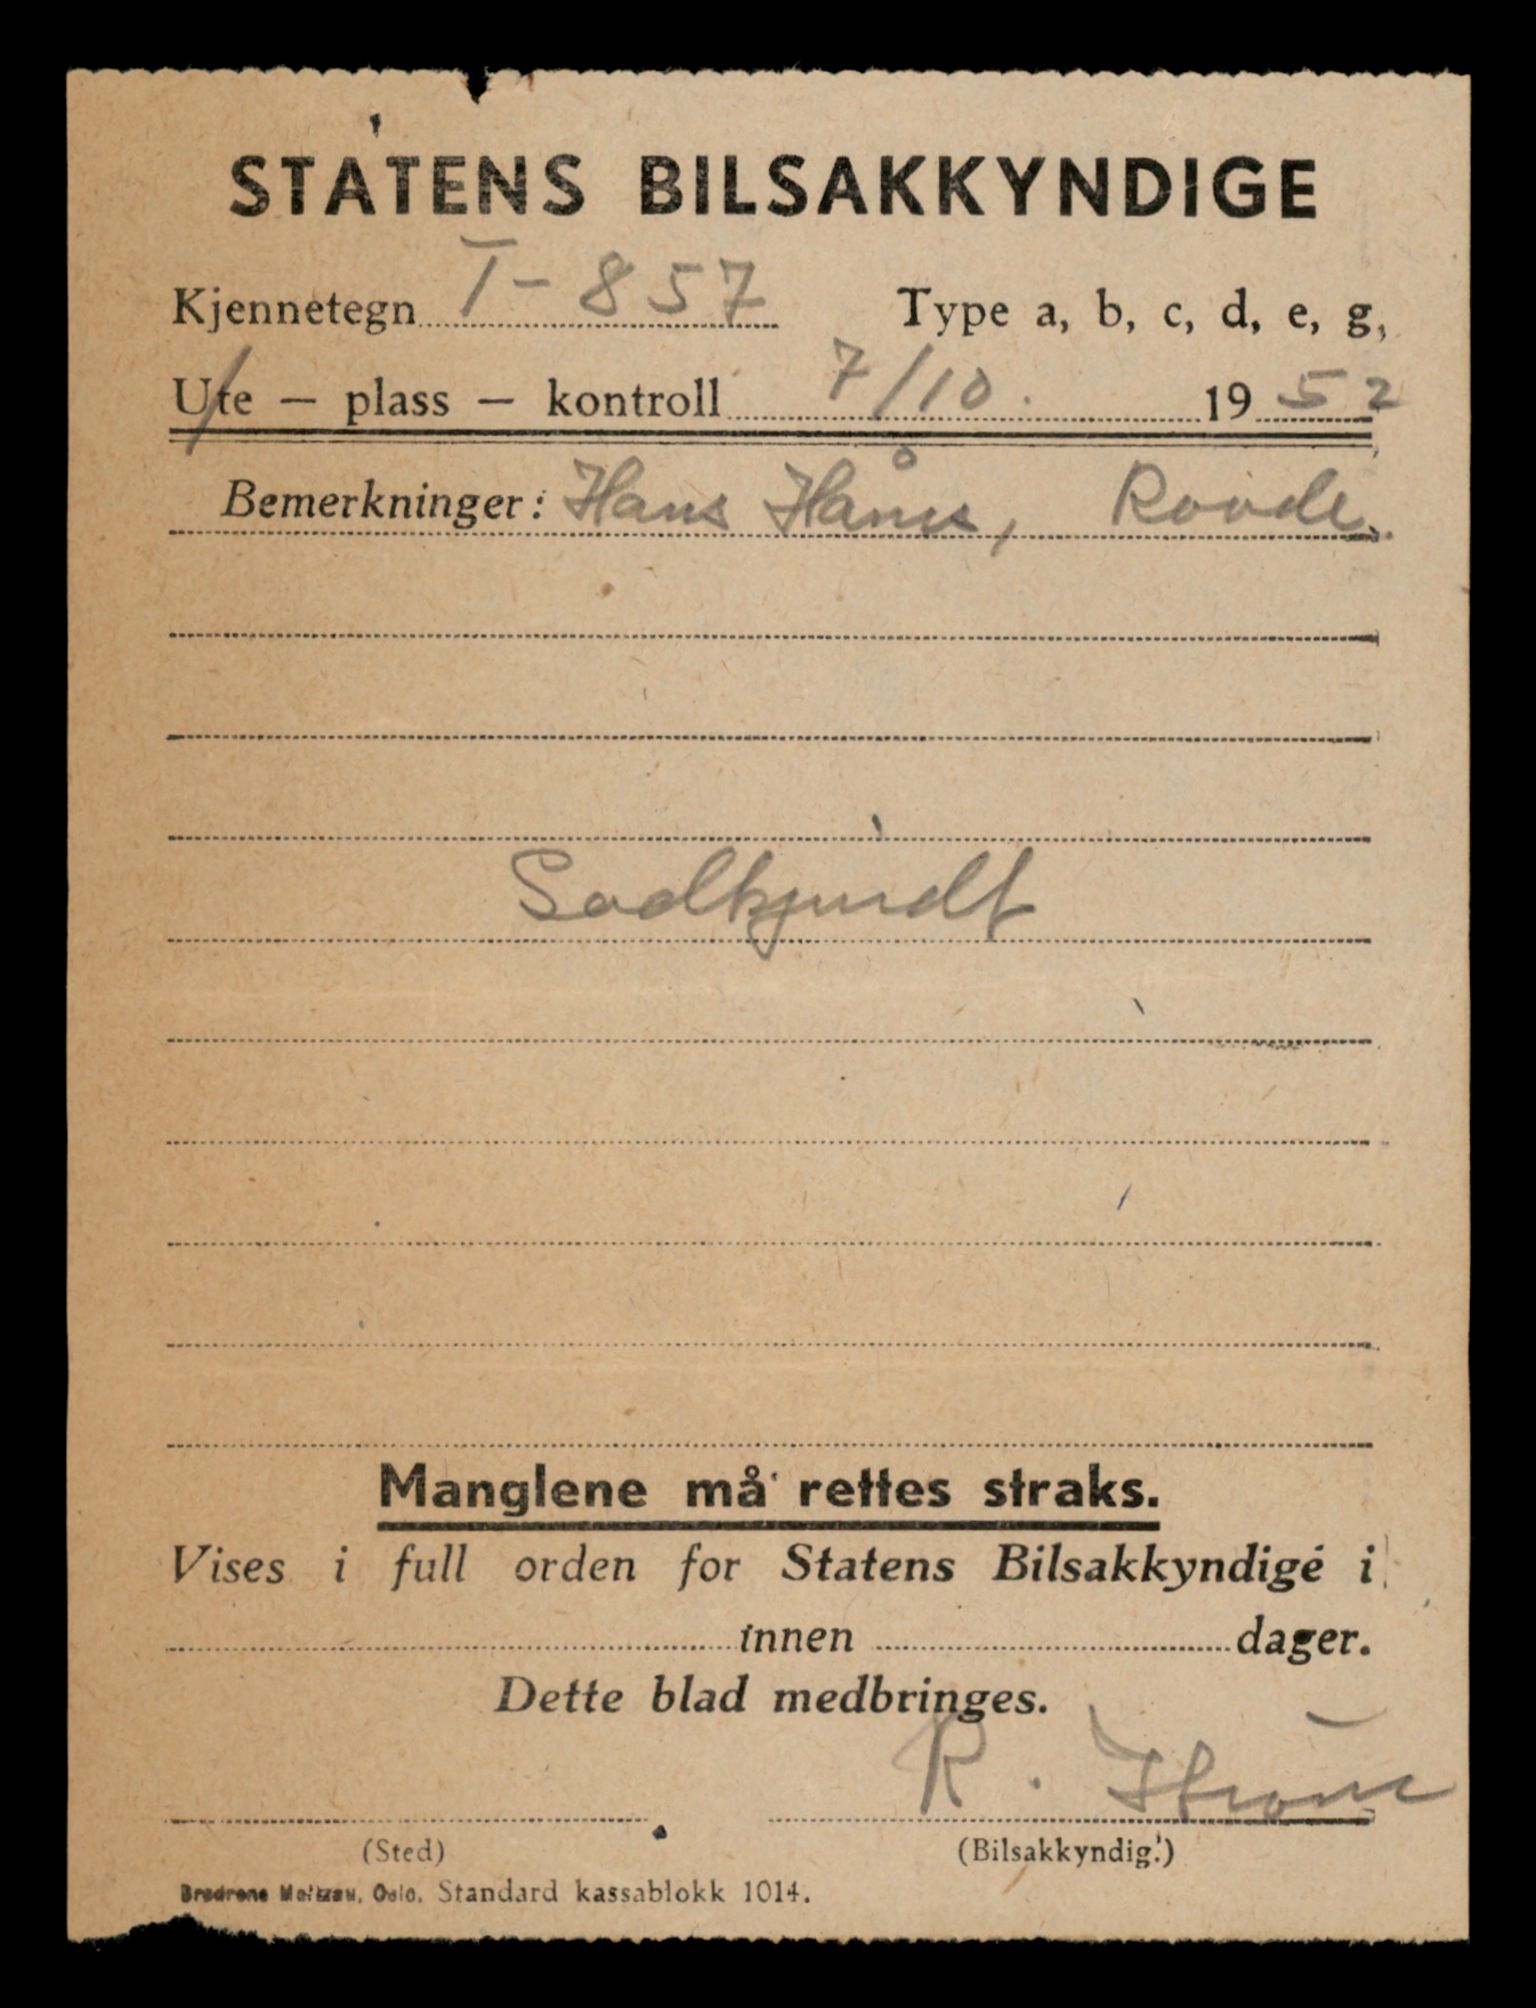 STATENS BILSAKKYNDIGE
Kjennetegn T-857 Type a, b, c, d, e, g,
Ute — plass — kontroll 7/10. 1952
Bemerkninger: Hans
Godkjendt
Manglene må rettes straks.
Vises i full orden for Statens Bilsakkyndige i
innen dager.
Dette blad medbringes.
R. Strøm
(Sted) (Bilsakkyndig.)
Brødrene Oslo. Standard kassablokk 1014.